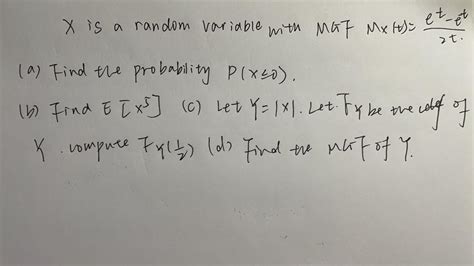 X is a random variable with MGF Mx(t) = (e^t - e^t)/2t.
(a) Find the probability P(X≤0).
(b) Find E[X^5] (c) Let Y=|X|. Let F_Y be the cdf of
Y. compute F_Y(1/2) (d) Find the MGF of Y.